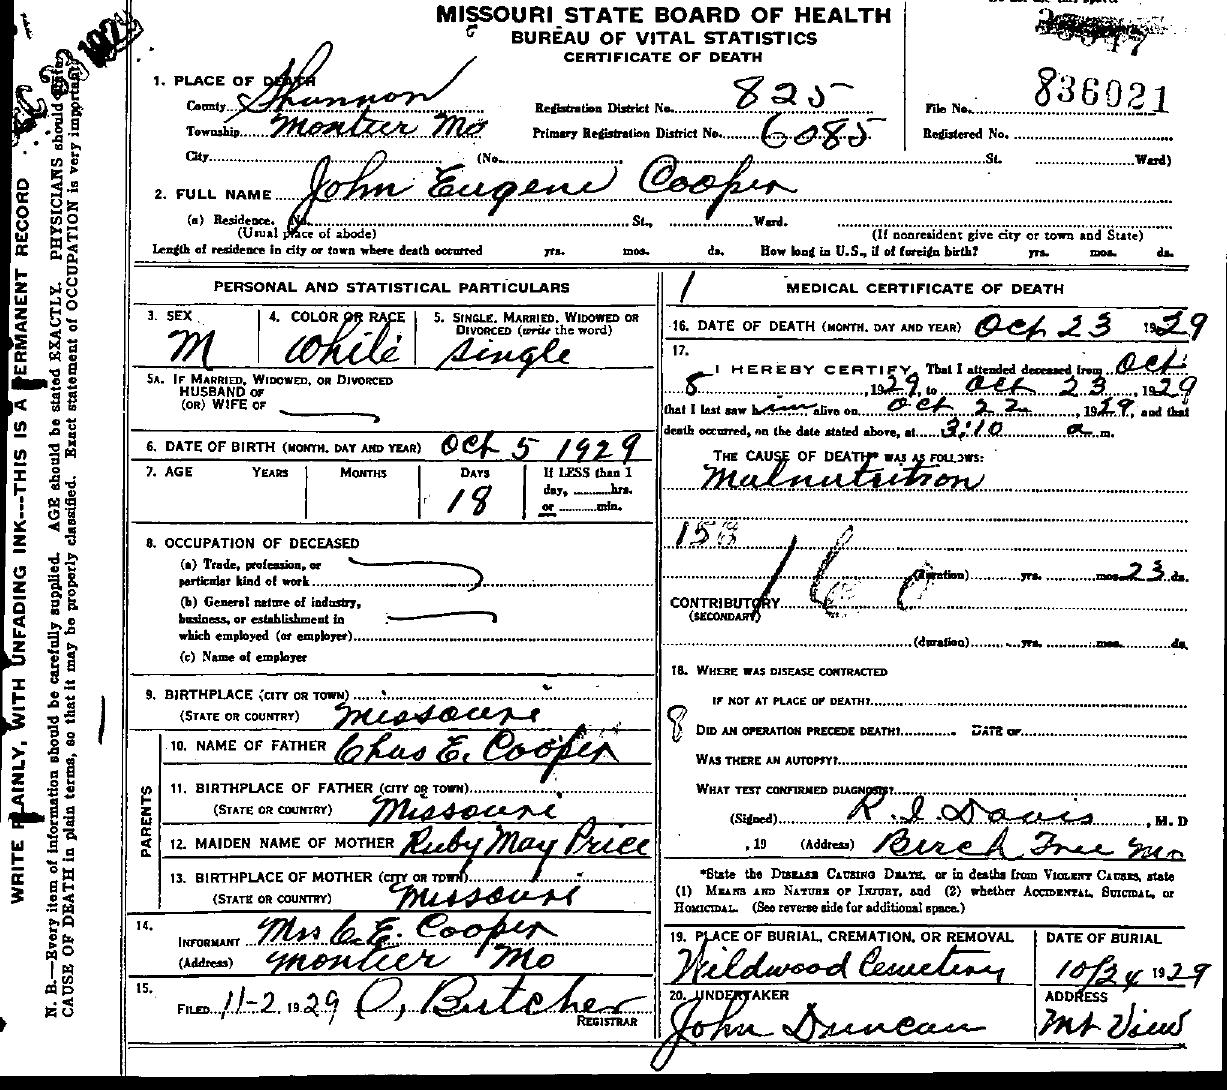 MISSOURI STATE BOARD OF HEALTH
BUREAU OF VITAL STATISTICS
CERTIFICATE OF DEATH
1. PLACE OF DEATH
County Shannon Registration District No. 825 File No. 836021
Township Montier Mo Primary Registration District No. 6085 Registered No.
City (No. St. Ward)
2. FULL NAME John Eugene Cooper
(a) Residence. No. St., Ward.
(Usual place of abode) (If nonresident give city or town and State)
Length of residence in city or town where death occurred yrs. mos. ds. How long in U.S., if of foreign birth? yrs. mos. ds.
PERSONAL AND STATISTICAL PARTICULARS
3. SEX 4. COLOR OR RACE 5. SINGLE, MARRIED, WIDOWED OR
DIVORCED (write the word)
M White Single
5A. IF MARRIED, WIDOWED, OR DIVORCED
HUSBAND OF
(OR) WIFE OF
6. DATE OF BIRTH (MONTH, DAY AND YEAR) Oct 5 1929
7. AGE YEARS MONTHS DAYS If LESS than 1
day, hrs.
18 or min.
8. OCCUPATION OF DECEASED
(a) Trade, profession, or
particular kind of work
(b) General nature of industry,
business, or establishment in
which employed (or employer)
(c) Name of employer
9. BIRTHPLACE (CITY OR TOWN)
(STATE OR COUNTRY) Missouri
PARENTS
10. NAME OF FATHER Chas E. Cooper
11. BIRTHPLACE OF FATHER (CITY OR TOWN)
(STATE OR COUNTRY) Missouri
12. MAIDEN NAME OF MOTHER Ruby May Price
13. BIRTHPLACE OF MOTHER (CITY OR TOWN)
(STATE OR COUNTRY) Missouri
14.
INFORMANT Mrs C. E. Cooper
(Address) Montier Mo
15.
FILED 11-2 1929 O, Butcher
REGISTRAR
1 MEDICAL CERTIFICATE OF DEATH
16. DATE OF DEATH (MONTH, DAY AND YEAR) Oct 23 1929
17.
I HEREBY CERTIFY, That I attended deceased from Oct
8, 1929, to Oct 23, 1929
that I last saw him alive on Oct 22, 1929, and that
death occurred, on the date stated above, at 3:10 a m.
THE CAUSE OF DEATH* WAS AS FOLLOWS:
Malnutrition
(duration) yrs. mos. 23 ds.
160
CONTRIBUTORY
(SECONDARY)
(duration) yrs. mos. ds.
18. WHERE WAS DISEASE CONTRACTED
IF NOT AT PLACE OF DEATH?
8 DID AN OPERATION PRECEDE DEATH? DATE OF
WAS THERE AN AUTOPSY?
WHAT TEST CONFIRMED DIAGNOSIS?
(Signed) R. I. Davis, M. D
, 19 (Address) Birch Tree Mo
*State the DISEASE CAUSING DEATH, or in deaths from VIOLENT CAUSES, state
(1) MEANS AND NATURE OF INJURY, and (2) whether ACCIDENTAL, SUICIDAL, or
HOMICIDAL. (See reverse side for additional space.)
19. PLACE OF BURIAL, CREMATION, OR REMOVAL DATE OF BURIAL
Wildwood Cemetery 10/24 1929
20. UNDERTAKER ADDRESS
John Duncan Mt View
WRITE PLAINLY, WITH UNFADING INK---THIS IS A PERMANENT RECORD
N. B.—Every item of information should be carefully supplied. AGE should be stated EXACTLY. PHYSICIANS should state
CAUSE OF DEATH in plain terms, so that it may be properly classified. Exact statement of OCCUPATION is very important.